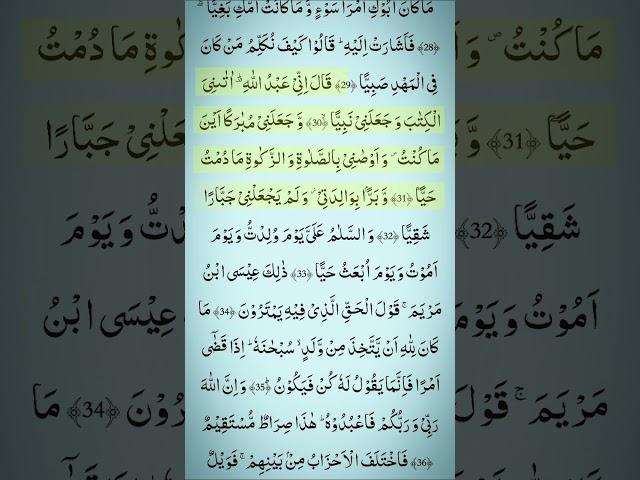 مَا كَانَ اَبُوْكِ امْرَاَ سَوْءٍ وَّ مَا كَانَتْ اُمُّكِ بَغِیًّا ۖۚ
﴿28﴾ فَاَشَارَتْ اِلَیْهِ ؕ قَالُوْا كَیْفَ نُكَلِّمُ مَنْ كَانَ
فِی الْمَهْدِ صَبِیًّا ﴿29﴾ قَالَ اِنِّیْ عَبْدُ اللّٰهِ ؕ۫ اٰتٰىنِیَ
الْكِتٰبَ وَ جَعَلَنِیْ نَبِیًّا ﴿30﴾ۙ وَّ جَعَلَنِیْ مُبٰرَكًا اَیْنَ
مَا كُنْتُ ۪ وَ اَوْصٰنِیْ بِالصَّلٰوةِ وَ الزَّكٰوةِ مَا دُمْتُ
حَیًّا ﴿31﴾۪ۖ وَّ بَرًّۢا بِوَالِدَتِیْ ؗ وَ لَمْ یَجْعَلْنِیْ جَبَّارًا
شَقِیًّا ﴿32﴾ وَ السَّلٰمُ عَلَیَّ یَوْمَ وُلِدْتُّ وَ یَوْمَ
اَمُوْتُ وَ یَوْمَ اُبْعَثُ حَیًّا ﴿33﴾ ذٰلِكَ عِیْسَی ابْنُ
مَرْیَمَ ۚ قَوْلَ الْحَقِّ الَّذِیْ فِیْهِ یَمْتَرُوْنَ ﴿34﴾ مَا
كَانَ لِلّٰهِ اَنْ یَّتَّخِذَ مِنْ وَّلَدٍ ۙ سُبْحٰنَهٗ ؕ اِذَا قَضٰۤی
اَمْرًا فَاِنَّمَا یَقُوْلُ لَهٗ كُنْ فَیَكُوْنُ ﴿35﴾ؕ وَ اِنَّ اللّٰهَ
رَبِّیْ وَ رَبُّكُمْ فَاعْبُدُوْهُ ؕ هٰذَا صِرَاطٌ مُّسْتَقِیْمٌ
﴿36﴾ فَاخْتَلَفَ الْاَحْزَابُ مِنْۢ بَیْنِهِمْ ۚ فَوَیْلٌ